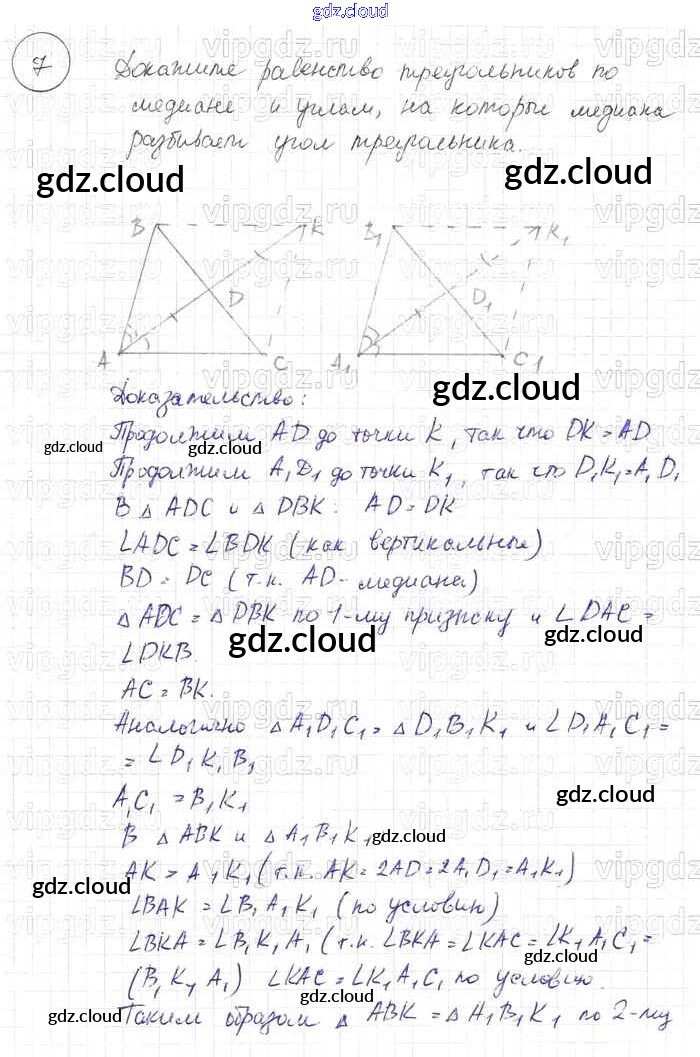 gdz.cloud
7
Докажите равенство треугольников по
медиане и углам, на которые медиана
разбивает угол треугольника.
gdz.cloud gdz.cloud
B K B₁ K₁
D D₁
A C A₁ C₁
Доказательство:
gdz.cloud
Продолжим AD до точки K, так что DK = AD
gdz.cloud
Продолжим A₁D₁ до точки K₁, так что D₁K₁ = A₁D₁
В △ ADC и △ DBK: AD = DK
∠ADC = ∠BDK (как вертикальные)
BD = DC (т.к. AD - медиана)
△ ADC = △ DBK по 1-му признаку и ∠DAC =
gdz.cloud gdz.cloud
∠DKB.
AC = BK.
Аналогично △ A₁D₁C₁ = △ D₁B₁K₁ и ∠D₁A₁C₁ =
= ∠D₁K₁B₁
gdz.cloud
A₁C₁ = B₁K₁
В △ ABK и △ A₁B₁K₁
gdz.cloud
AK = A₁K₁ (т.к. AK = 2AD = 2A₁D₁ = A₁K₁)
gdz.cloud
∠BAK = ∠B₁A₁K₁ (по условию)
∠BKA = ∠B₁K₁A₁ (т.к. ∠BKA = ∠KAC = ∠K₁A₁C₁ =
gdz.cloud
(B₁K₁A₁) ∠KAC = ∠K₁A₁C₁ по условию.
gdz.cloud
Таким образом △ ABK = △ A₁B₁K₁ по 2-му
gdz.cloud gdz.cloud